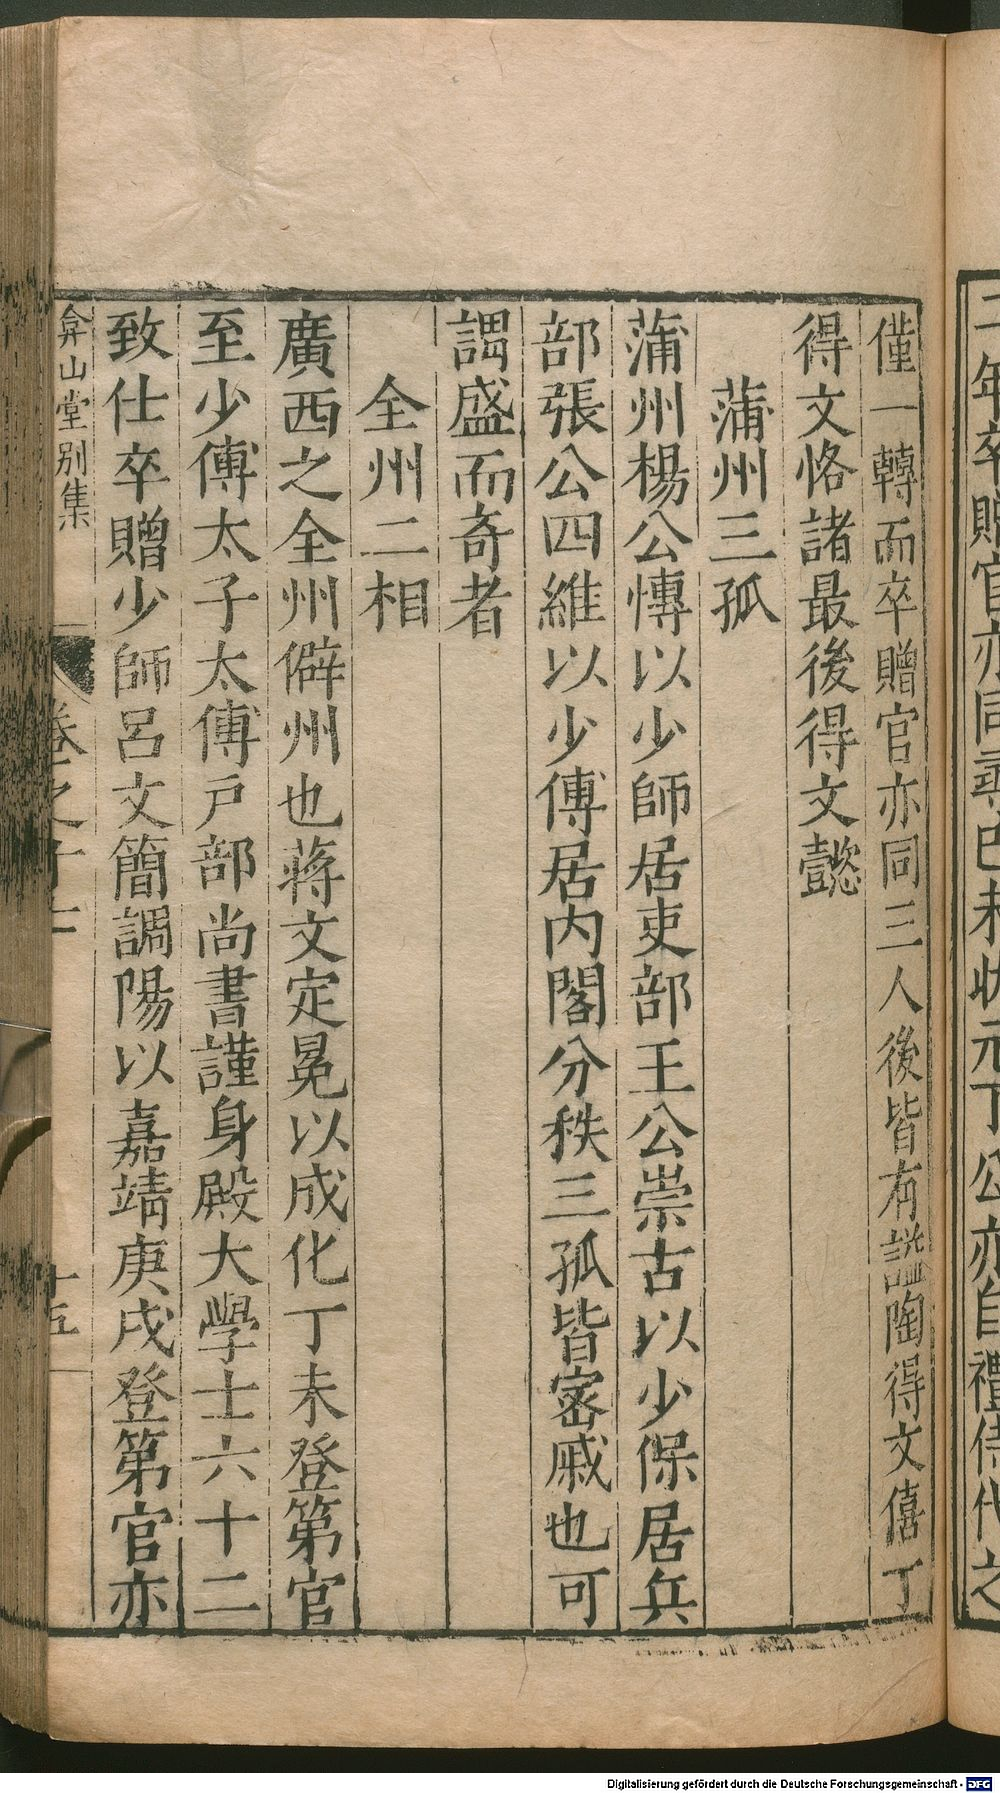 二年卒贈官亦同尋己未狀元丁公亦自禮侍代之
僅一轉而卒贈官亦同三人後皆有諡陶得文僖丁
得文恪諸最後得文懿
蒲州三孤
蒲州楊公博以少師居吏部王公崇古以少保居兵
部張公四維以少傅居内閣分秩三孤皆密戚也可
謂盛而奇者
全州二相
廣西之全州僻州也蔣文定冕以成化丁未登第官
至少傅太子太傅戶部尚書謹身殿大學士六十二
致仕卒贈少師呂文簡調陽以嘉靖庚戌登第官亦
弇山堂别集 卷之十 十五
Digitalisierung gefördert durch die Deutsche Forschungsgemeinschaft - DFG